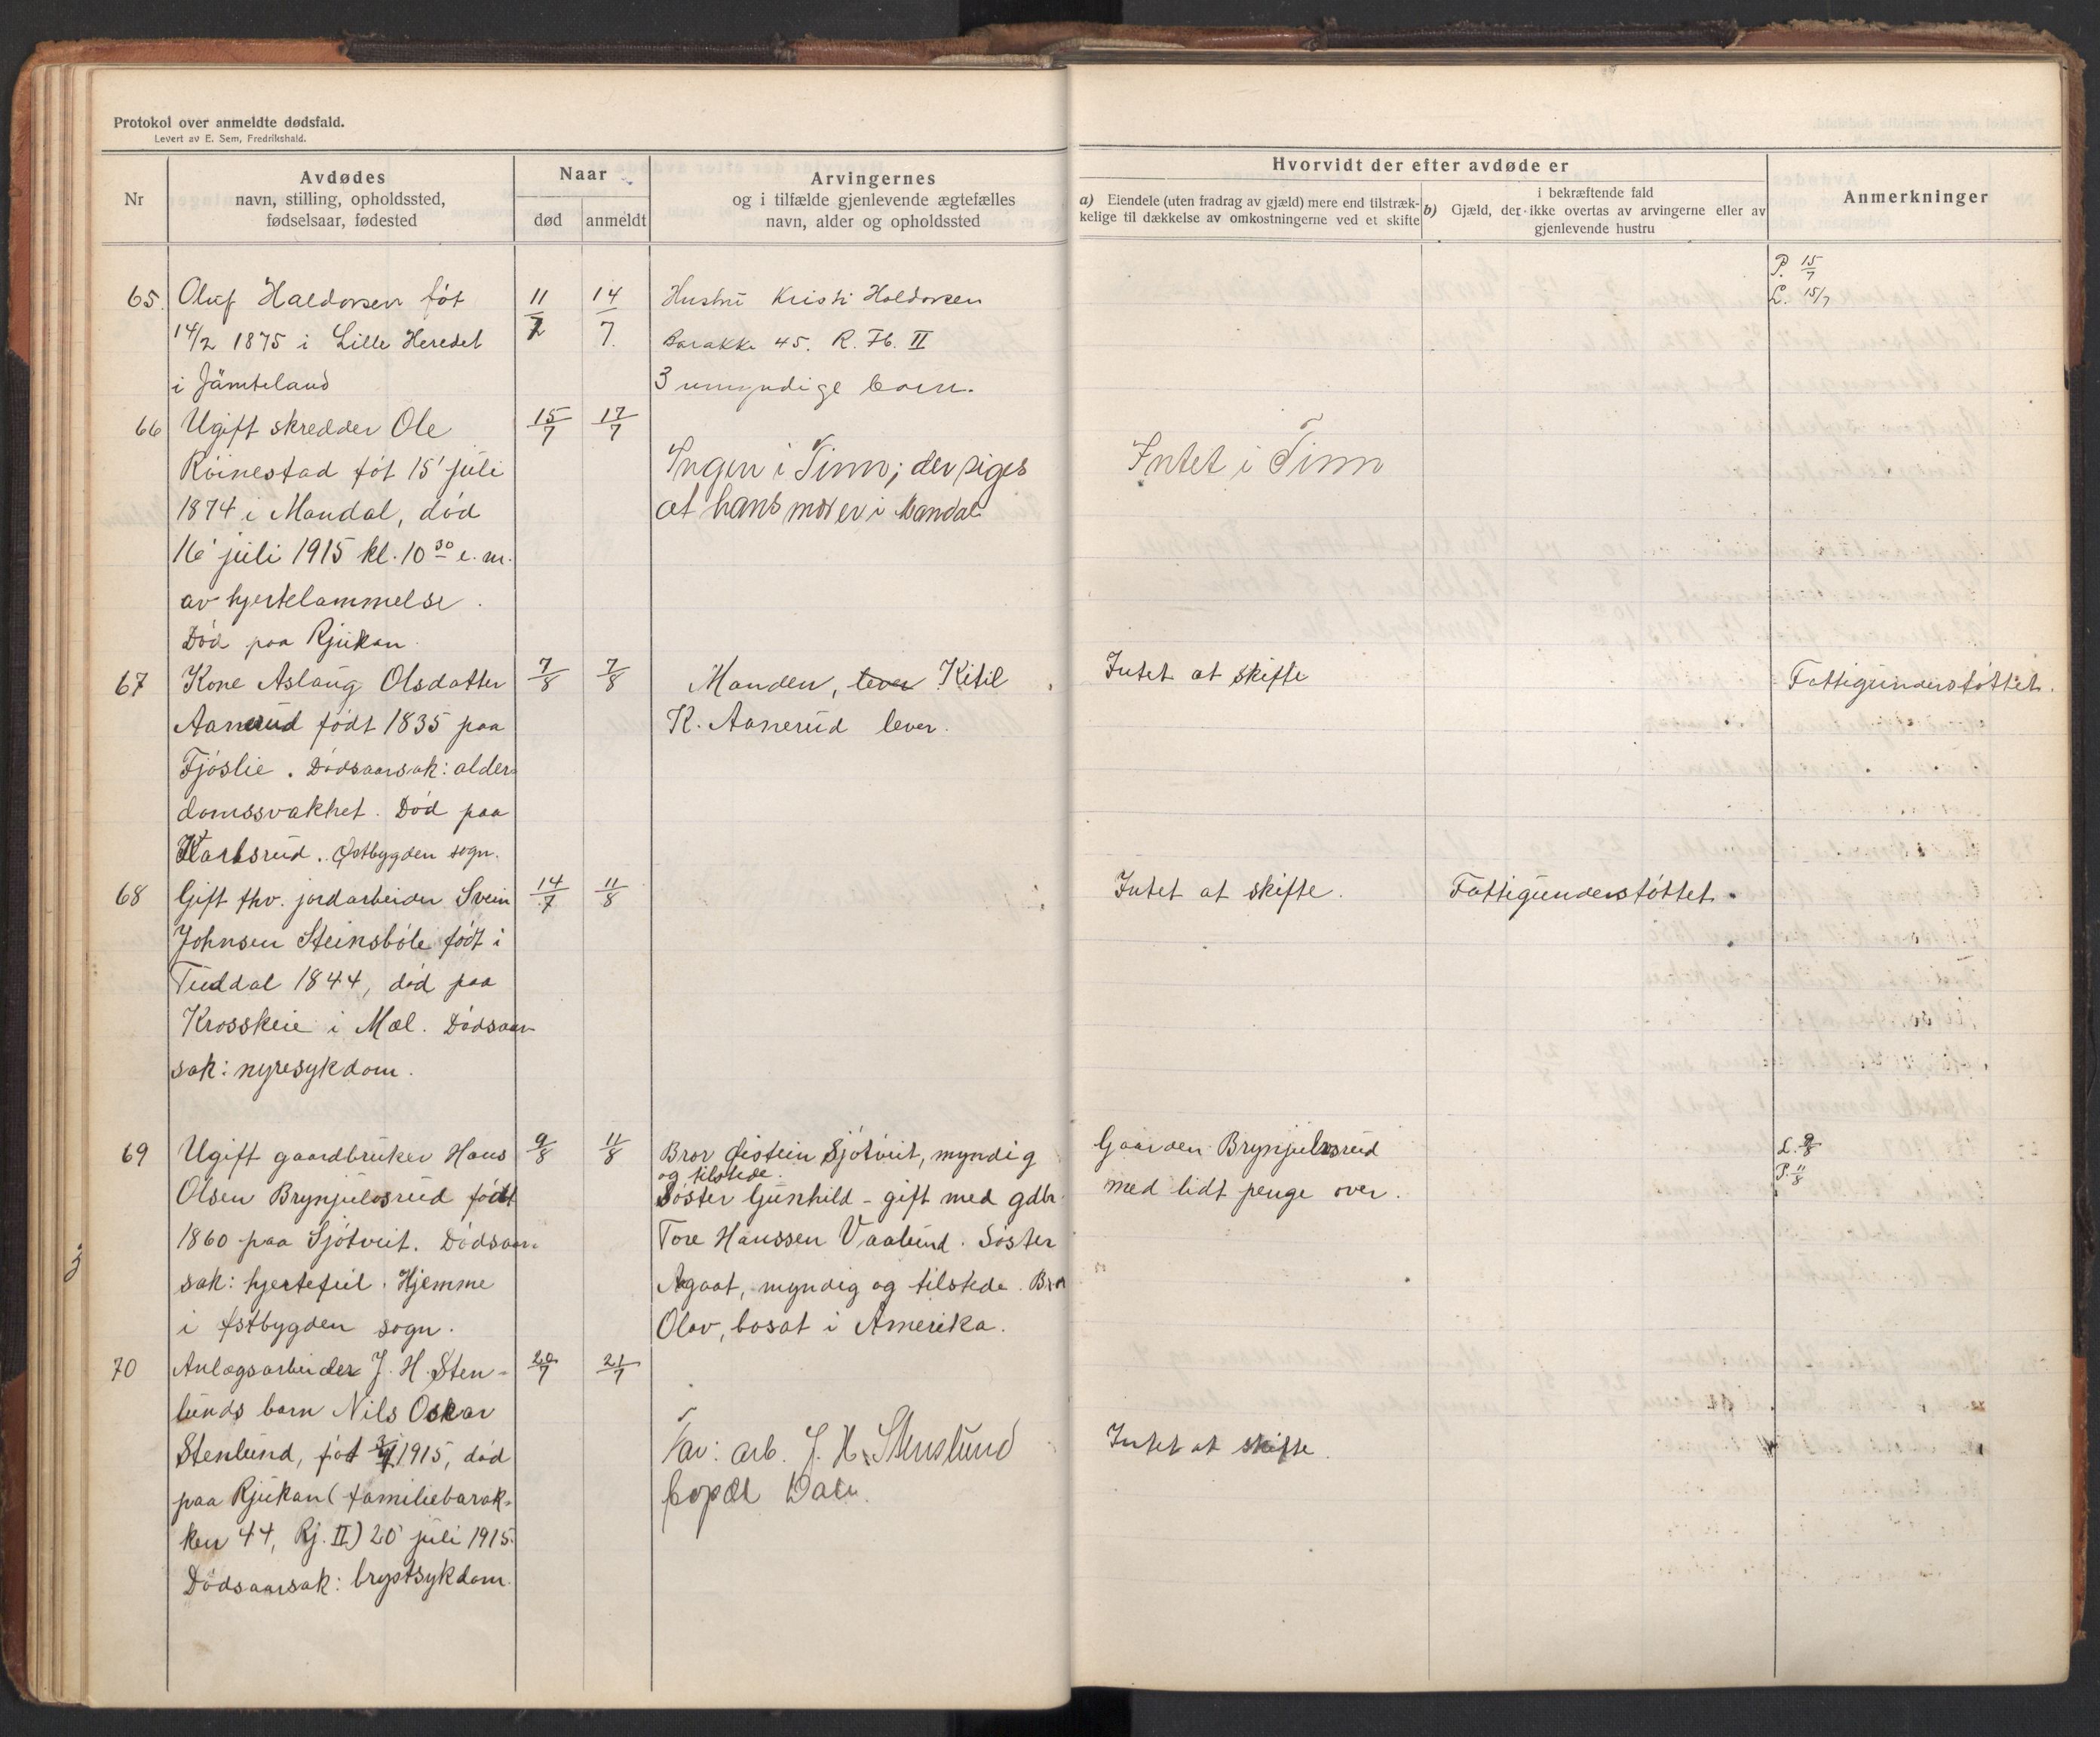 Protokol over anmeldte dødsfald.
Levert av E. Sem, Fredrikshald.
Nr
Avdødes
navn, stilling, opholdssted,
fødselsaar, fødested
Naar
død
anmeldt
Arvingernes
og i tilfælde gjenlevende ægtefælles
navn, alder og opholdssted
Hvorvidt der efter avdøde er
a) Eiendele (uten fradrag av gjæld) mere end tilstræk-
kelige til dækkelse av omkostningerne ved et skifte
i bekræftende fald
b) Gjæld, der ikke overtas av arvingerne eller av
gjenlevende hustru
Anmerkninger
65. Oluf Haldorsen föt
14/2 1875 i Lille Heredet
i Jämteland
11/7
14/7.
Hustru Kristi Haldorsen
Barakke 45. R. Fb. II
3 umyndige barn.
P. 15/7
L. 15/7
66 Ugift skredder Ole
Röinestad föt 15' juli
1874 i Mandal, död
16' juli 1915 kl. 10 30 e. m.
av hjertelammelse.
Död paa Rjukan.
15/7
17/7
Ingen i Tinn; der siges
at hans mor er i Mandal
Intet i Tinn
67 Kone Aslaug Olsdatter
Aanerud födt 1835 paa
Fjöslie. Dödsaarsak: alder-
domssvakhet. Död paa
Østbygden sogn.
7/8
7/8
Manden, lever Kitil
K. Aanerud lever.
Intet at skifte
Fattigunderstöttet.
68 Gift fhv. jordarbeider Svein
Johnsen Steinsböle födt i
Tuddal 1844, död paa
Krosskeie i Mæl. Dödsaar
sak: nyresykdom.
14/7
11/8
Intet at skifte.
Fattigunderstöttet.
69 Ugift gaardbruker Hans
Olsen Brynjulosrud födt
1860 paa Sjötveit. Dödsaar-
sak: hjertefeil. Hjemme
i Østbygden sogn.
9/8
11/8
Bror Øistein Sjötveit, myndig
og tilstede.
Söster Gunhild - gift med gdbr.
Tore Hanssen Vaalund. Söster
Aagaat, myndig og tilstede. Bror
Olav, bosat i Amerika.
Gaarden Brynjulvsrud
med lidt penge over.
L. 9/8
P. 11/8
70 Anlægsarbeider J. H. Sten-
lunds barn Nils Oskar
Stenlund, föt 1915, död
paa Rjukan (familiebarak-
ken 44, Rj. II) 20' juli 1915.
Dödsaarsak: brystsykdom.
20/7
21/7
Far: arb. J. H. Stenslund
bopæl Dale.
Intet at skifte.